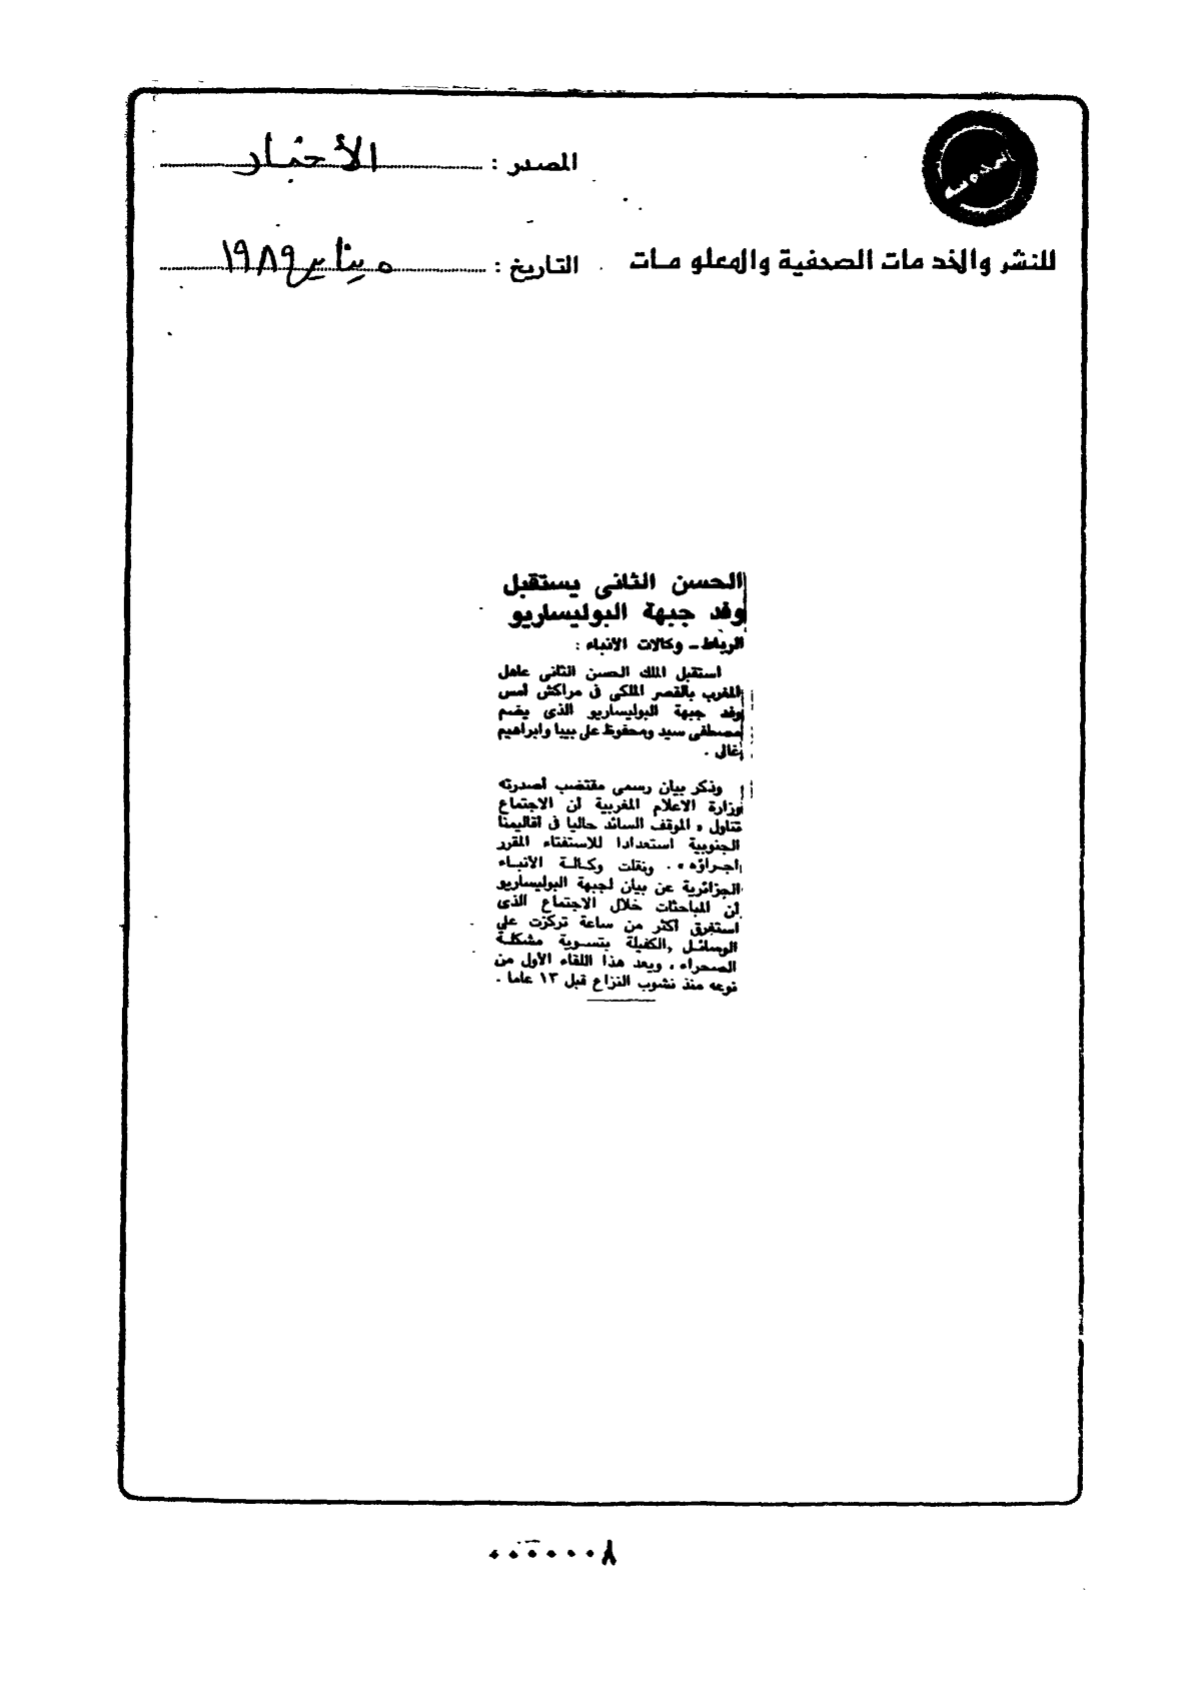 المصدر : الأخبار
للنشر والخدمات الصحفية والمعلومات
التاريخ : ٥ يناير ١٩٨٩
الحسن الثانى يستقبل
وفد جبهة البوليساريو
الرباط - وكالات الأنباء :
استقبل الملك الحسن الثانى عاهل
المغرب بالقصر الملكى فى مراكش أمس
وفد جبهة البوليساريو الذى يضم
مصطفى سيد ومحفوظ على بيبا وابراهيم
غالى .
وذكر بيان رسمى مقتضب أصدرته
وزارة الاعلام المغربية أن الاجتماع
تناول « الموقف السائد حاليا فى اقاليمنا
الجنوبية استعدادا للاستفتاء المقرر
اجراؤه » . ونقلت وكالة الأنباء
الجزائرية عن بيان لجبهة البوليساريو
أن المباحثات خلال الاجتماع الذى
استغرق اكثر من ساعة تركزت على
الوسائل الكفيلة بتسوية مشكلة
الصحراء ، ويعد هذا اللقاء الأول من
نوعه منذ نشوب النزاع قبل ١٣ عاما .